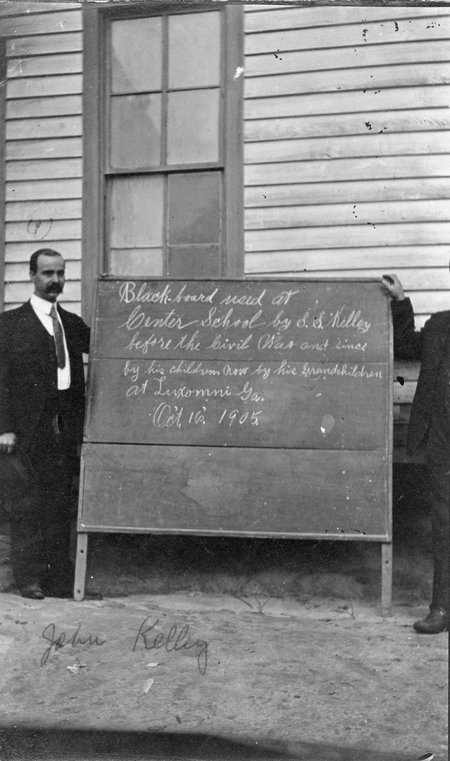 (?)
Black-board used at
Center School by S. S. Kelley
before the Civil War and since
by his children, now by his Grandchildren
at Luxomni Ga.
Oct 16, 1905.
John Kelley